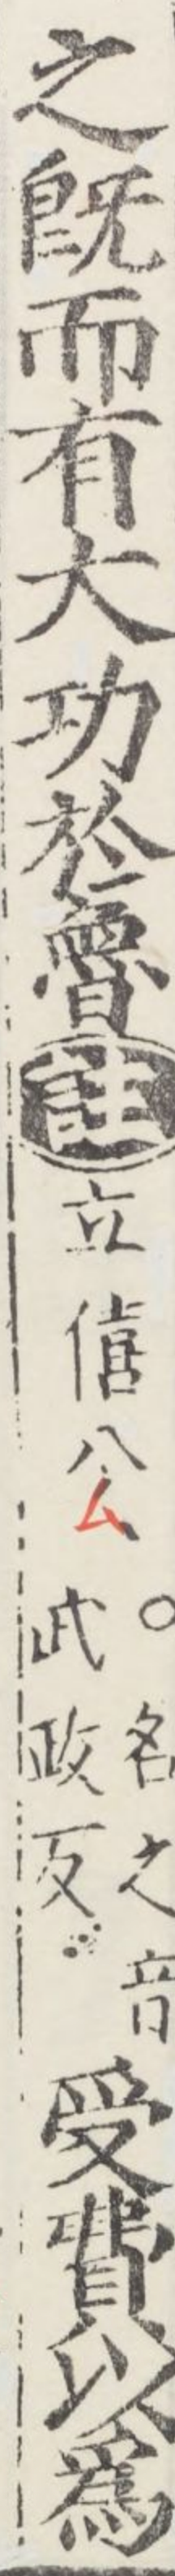 之既而有大功於魯註立僖公○名之音武政反受費以爲